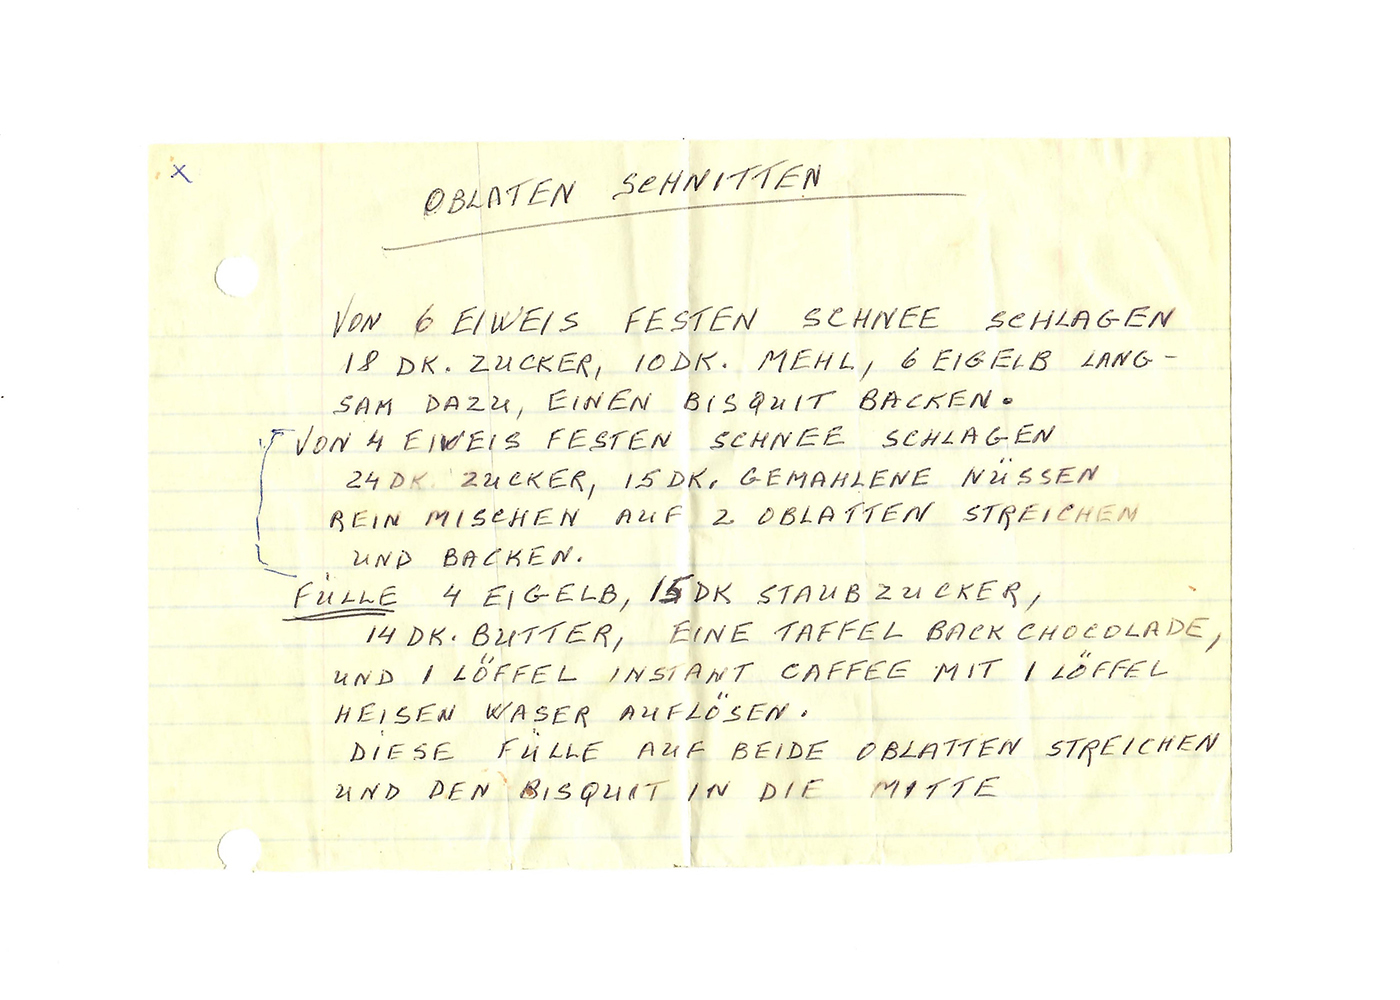 x
OBLATEN SCHNITTEN
VON 6 EIWEIS FESTEN SCHNEE SCHLAGEN
18 DK. ZUCKER, 10 DK. MEHL, 6 EIGELB LANG-
SAM DAZU, EINEN BISQUIT BACKEN.
VON 4 EIWEIS FESTEN SCHNEE SCHLAGEN
24 DK ZUCKER, 15 DK. GEMAHLENE NÜSSEN
REIN MISCHEN AUF 2 OBLATTEN STREICHEM
UND BACKEN.
FÜLLE 4 EIGELB, 15 DK STAUBZUCKER,
14 DK. BUTTER, EINE TAFFEL BACK CHOCOLADE,
UND 1 LÖFFEL INSTANT CAFFEE MIT 1 LÖFFEL
HEISEN WASER AUFLÖSEN.
DIESE FÜLLE AUF BEIDE OBLATTEN STREICHEN
UND DEN BISQUIT IN DIE MITTE